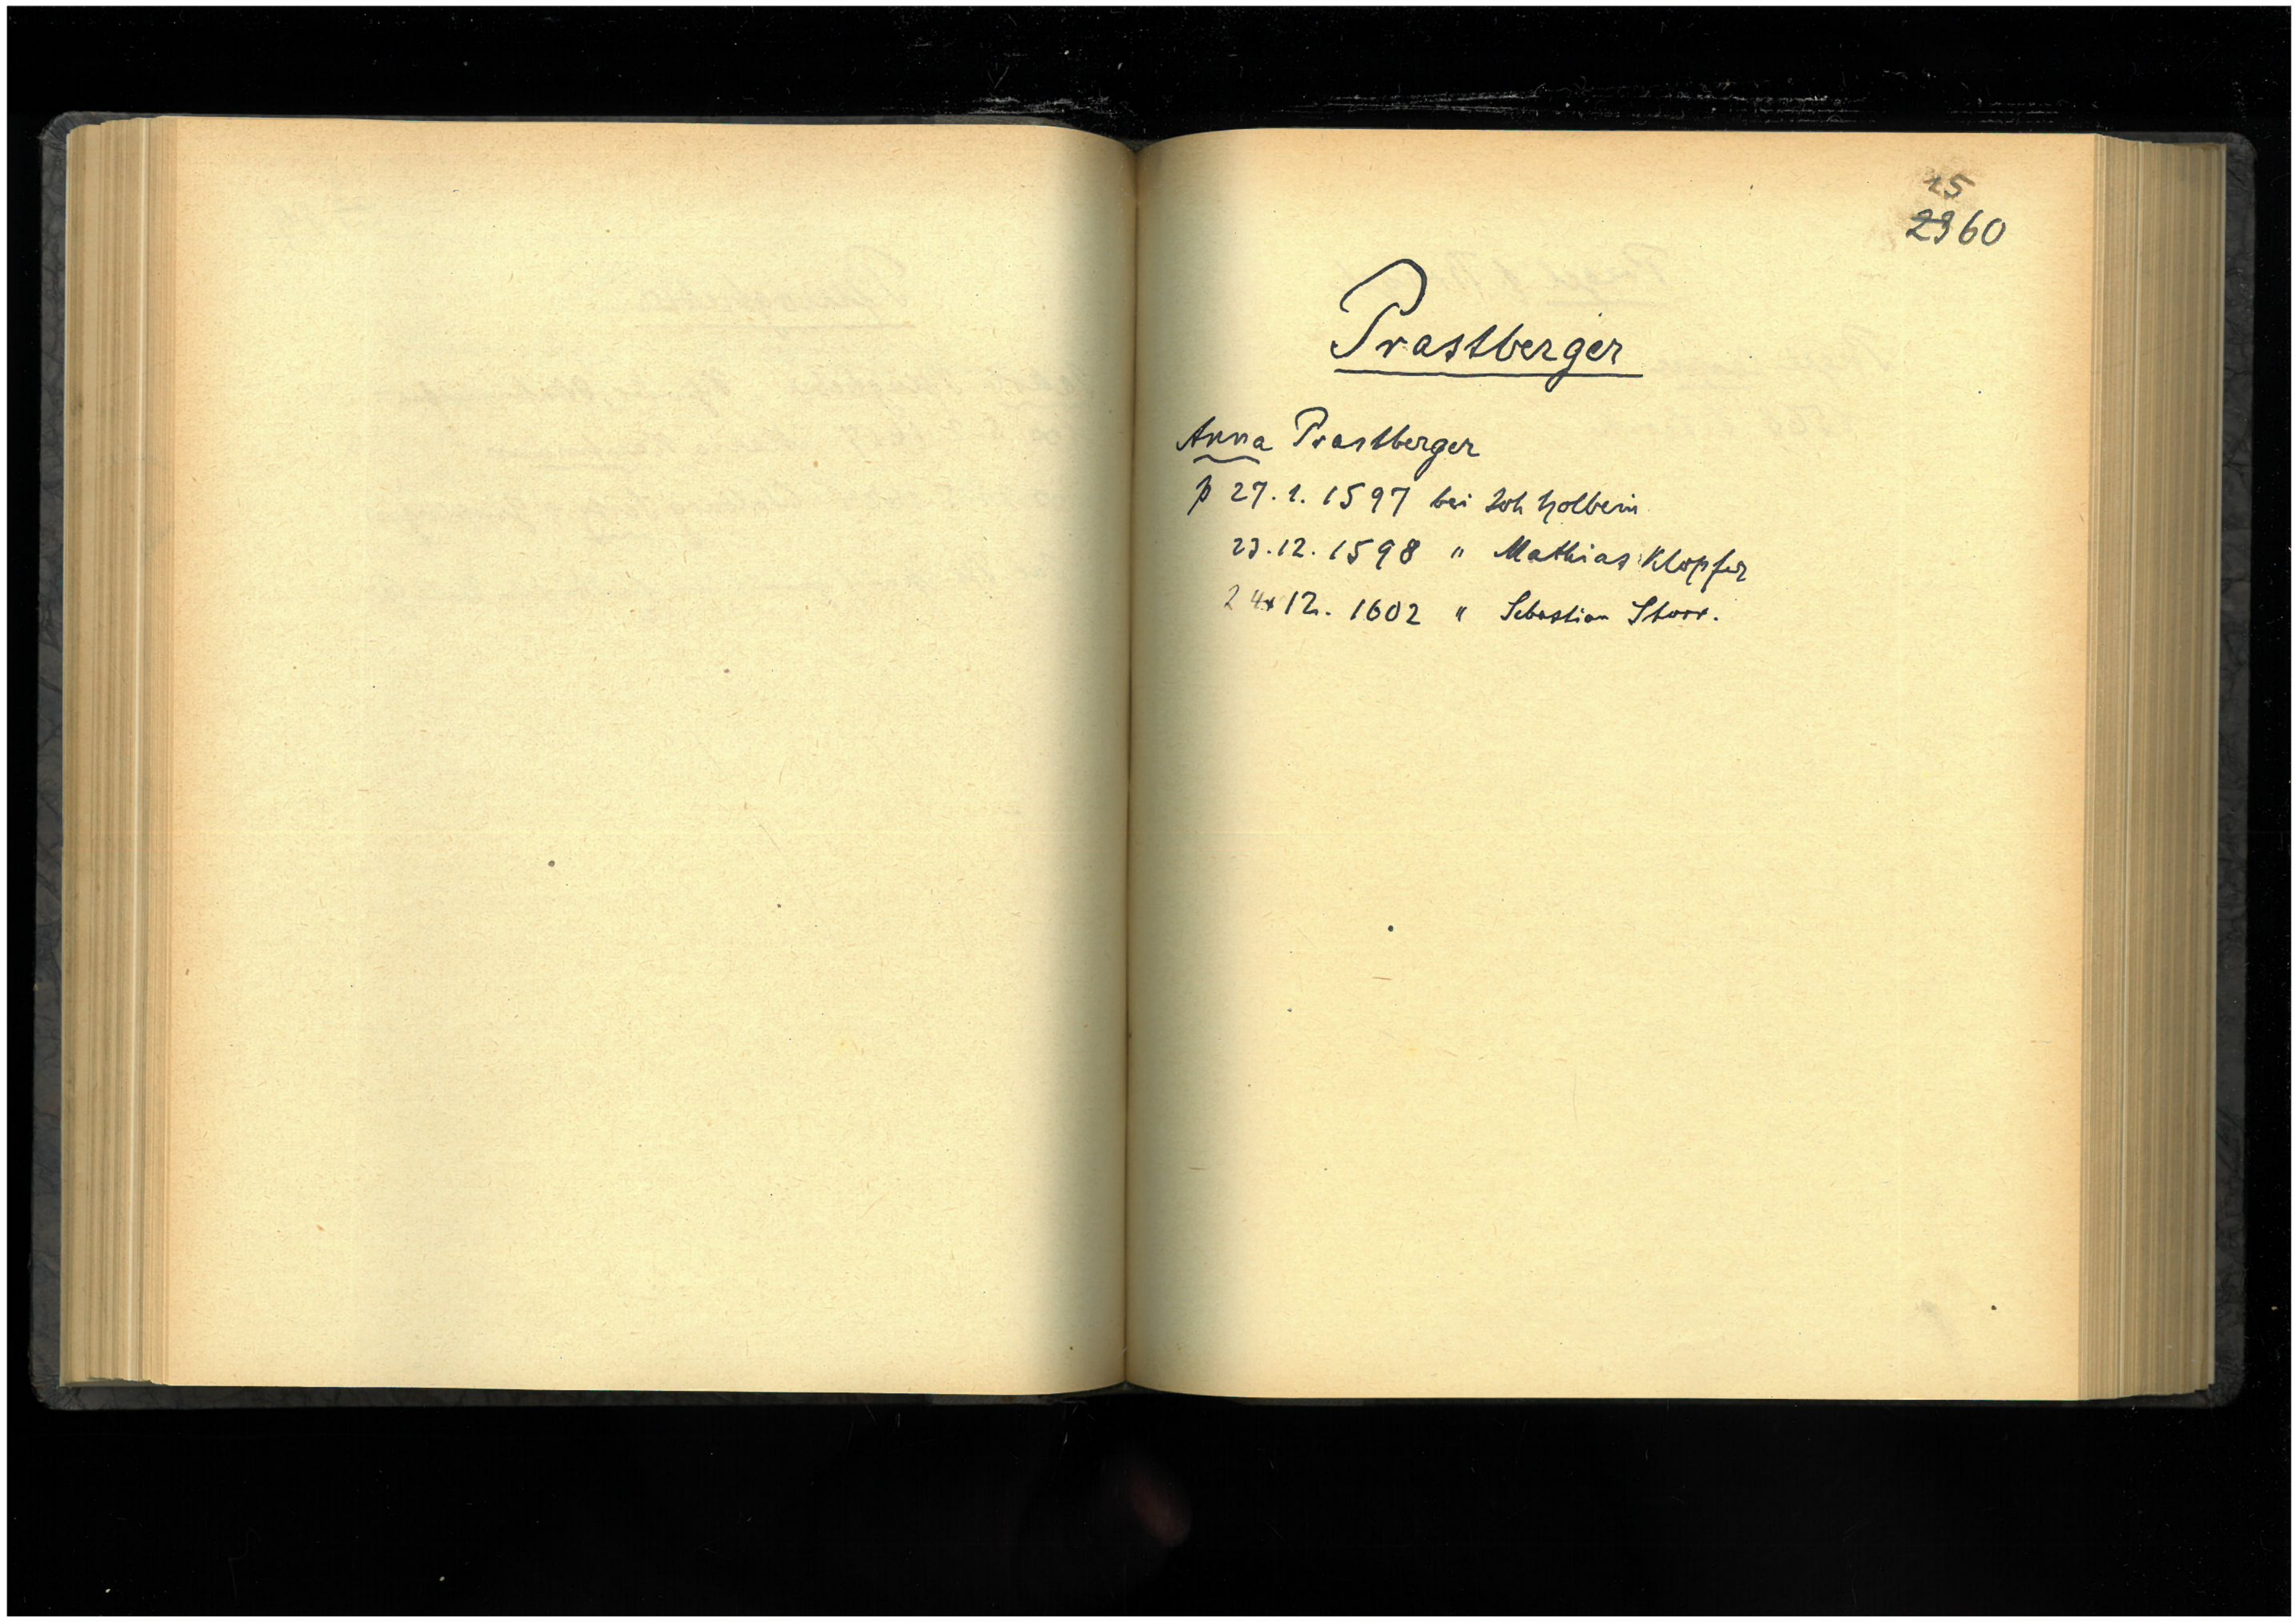 15
2360
Prastberger
Anna Prastberger
p 27. 1. 1597 bei Joh Holbein
23. 12. 1598 " Mathias Klopfer
24. 12. 1602 " Sebastian Storr.